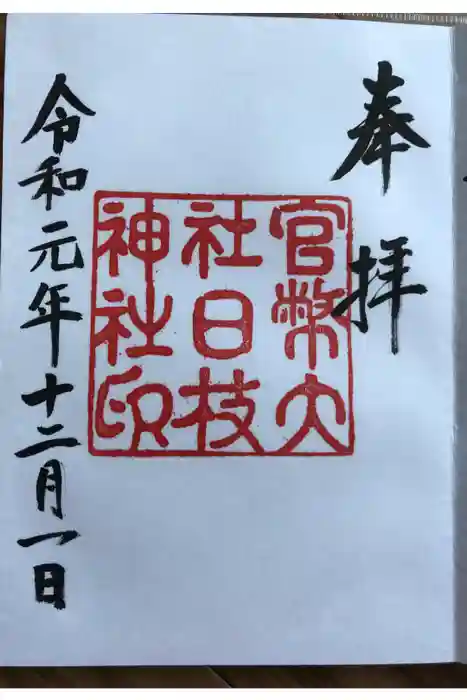 奉拝
官幣大
社日枝
神社印
令和元年十二月一日